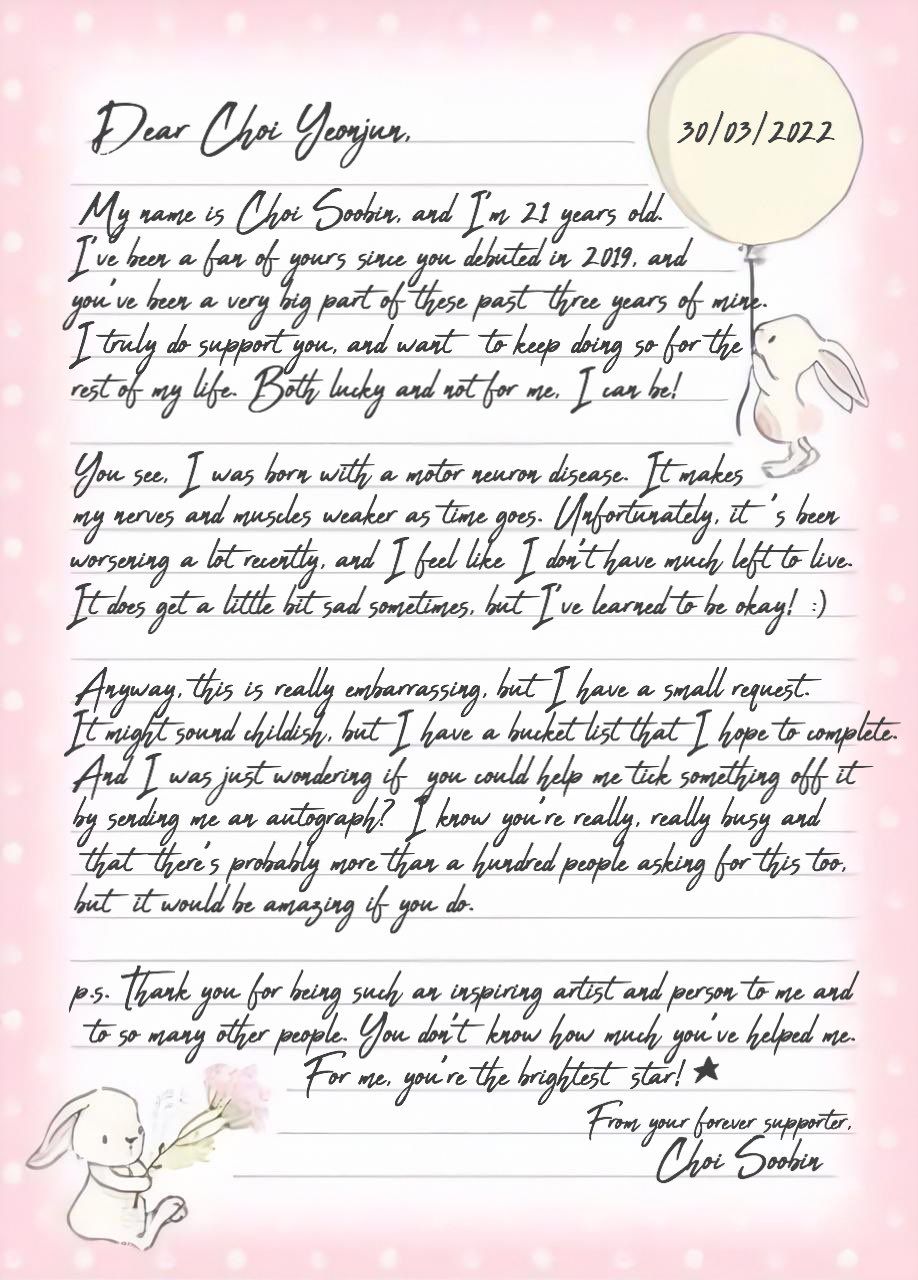 30/03/2022
Dear Choi Yeonjun,
My name is Choi Soobin, and I'm 21 years old.
I've been a fan of yours since you debuted in 2019, and
you've been a very big part of these past three years of mine.
I truly do support you, and want to keep doing so for the
rest of my life. Both lucky and not for me, I can be!
You see, I was born with a motor neuron disease. It makes
my nerves and muscles weaker as time goes. Unfortunately, it 's been
worsening a lot recently, and I feel like I don't have much left to live.
It does get a little bit sad sometimes, but I've learned to be okay! :)
Anyway, this is really embarrassing, but I have a small request.
It might sound childish, but I have a bucket list that I hope to complete.
And I was just wondering if you could help me tick something off it
by sending me an autograph? I know you're really, really busy and
that there's probably more than a hundred people asking for this too,
but it would be amazing if you do.
p.s. Thank you for being such an inspiring artist and person to me and
to so many other people. You don't know how much you've helped me.
For me, you're the brightest star! ★
From your forever supporter,
Choi Soobin